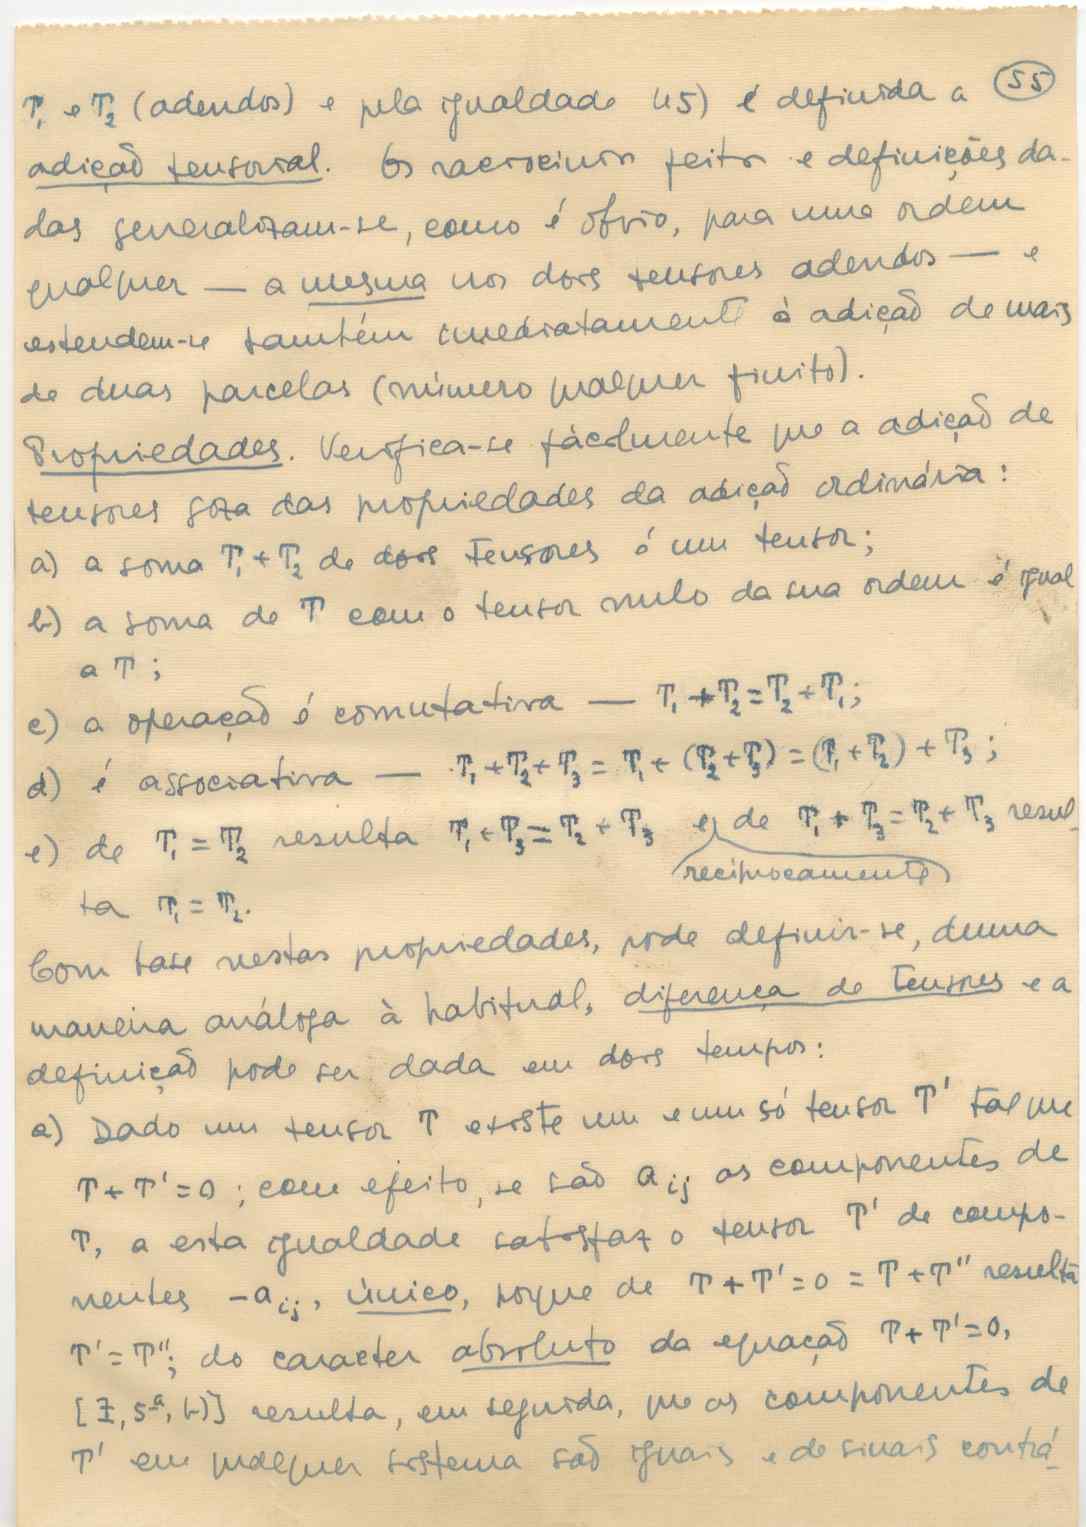 55
T₁ e T₂ (adendos) e pela igualdade 45) é definida a
adição tensorial. Os raciocínios feitos e definições da-
das generalizam-se, como é óbvio, para uma ordem
qualquer — a mesma nos dois tensores adendos — e
estendem-se também imediatamente à adição de mais
de duas parcelas (número qualquer finito).
Propriedades. Verifica-se fàcilmente que a adição de
tensores goza das propriedades da adição ordinária:
a) a soma T₁+T₂ de dois tensores é um tensor;
b) a soma de T com o tensor nulo da sua ordem é igual
a T;
c) a operação é comutativa — T₁+T₂=T₂+T₁;
d) é associativa — T₁+T₂+T₃ = T₁+(T₂+T₃) = (T₁+T₂)+T₃;
e) de T₁=T₂ resulta T₁+T₃=T₂+T₃ e, de T₁+T₃=T₂+T₃ resul-
reciprocamente
ta T₁=T₂.
Com base nestas propriedades, pode definir-se, duma
maneira análoga à habitual, diferença de tensores e a
definição pode ser dada em dois tempos:
a) Dado um tensor T existe um e um só tensor T' tal que
T+T'=0; com efeito, se são aᵢⱼ as componentes de
T, a esta igualdade satisfaz o tensor T' de compo-
nentes -aᵢⱼ, único, porque de T+T'=0=T+T'' resulta
T'=T''; do caracter absoluto da equação T+T'=0,
[I, 5ª, b)] resulta, em seguida, que as componentes de
T' em qualquer sistema são iguais e de sinais contrá-